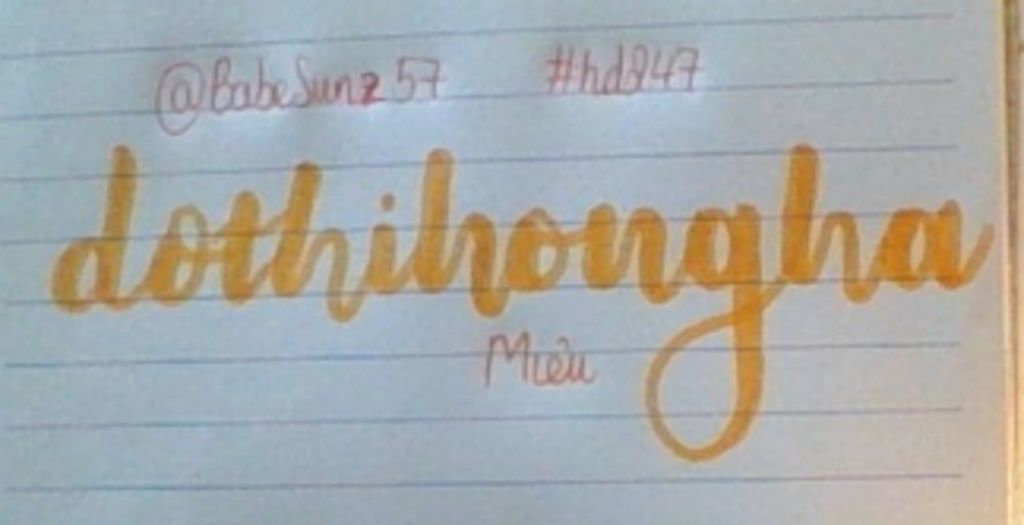 @BabeSunz57 #hd247
dothihongha
Miêu